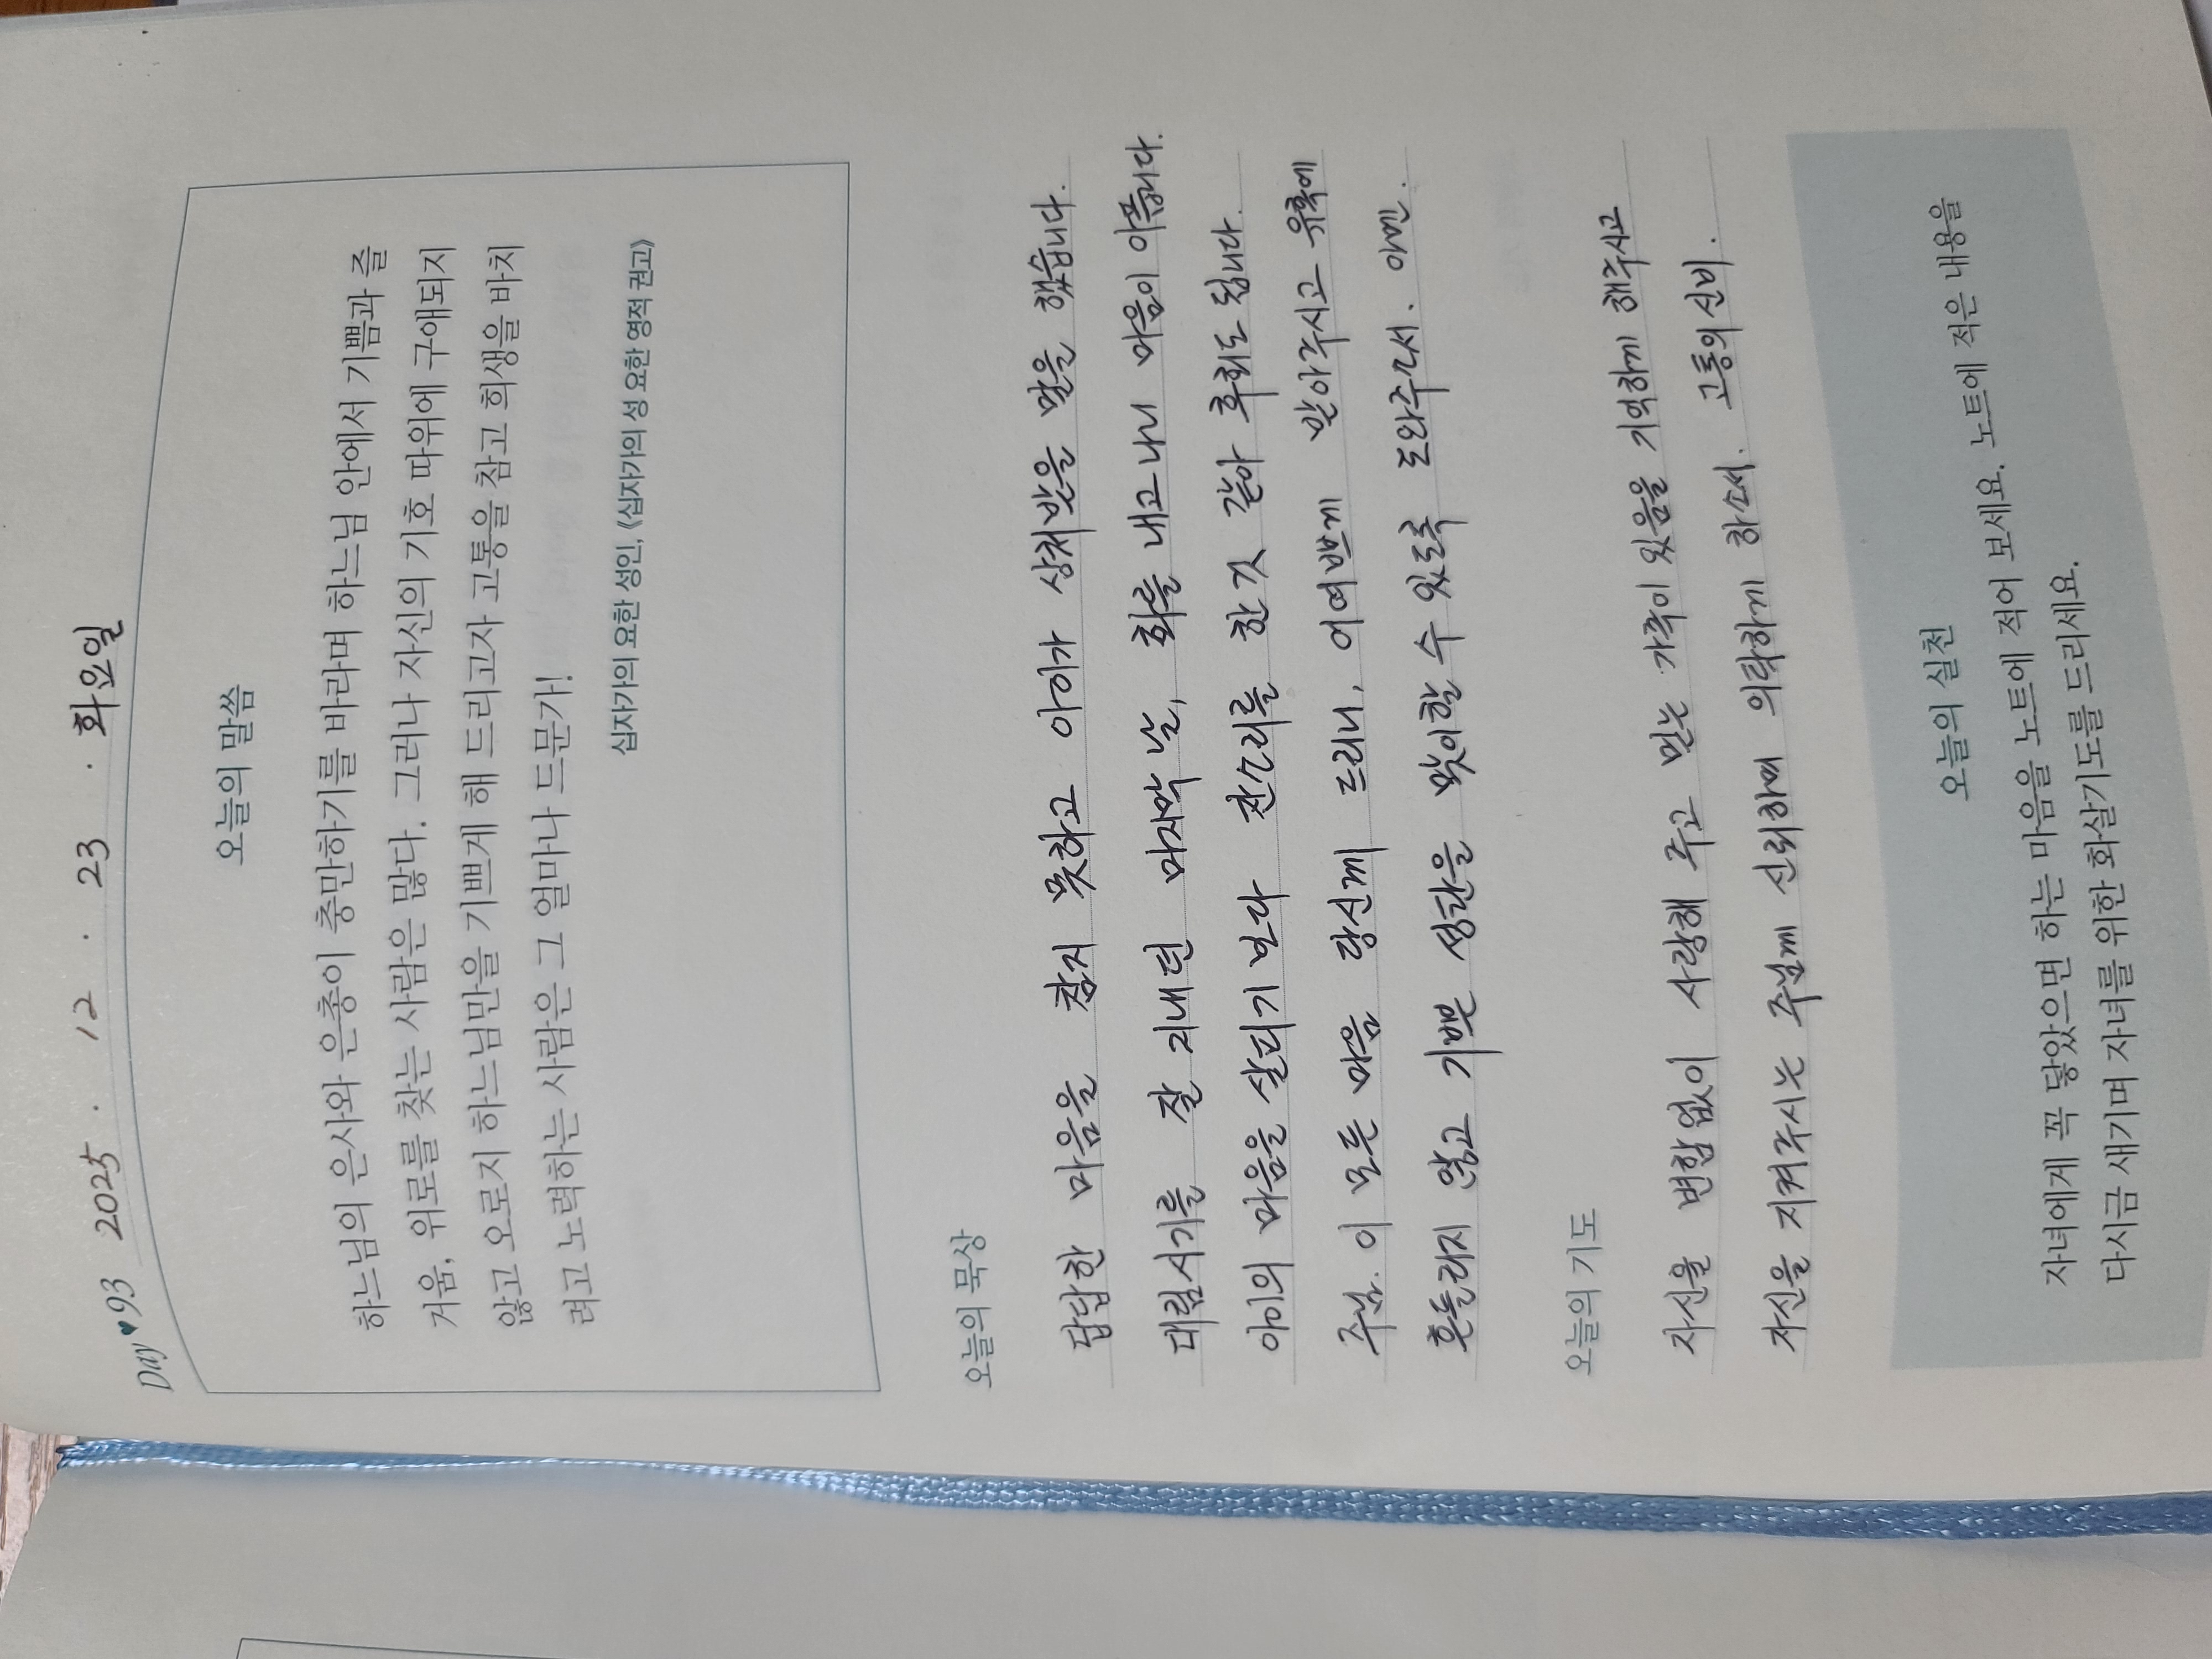 Day♥93 2025. 12. 23. 화요일
오늘의 말씀
하느님의 은사와 은총이 충만하기를 바라며 하느님 안에서 기쁨과 즐
거움, 위로를 찾는 사람은 많다. 그러나 자신의 기호 따위에 구애되지
않고 오로지 하느님만을 기쁘게 해 드리고자 고통을 참고 희생을 바치
려고 노력하는 사람은 그 얼마나 드문가!
십자가의 요한 성인, 《십자가의 성 요한 영적 권고》
오늘의 묵상
답답한 마음을 참지 못하고 아이가 상처받을 말을 했습니다.
대림시기를 잘 지내던 마지막 날, 화를 내고나니 마음이 아픕니다.
아이의 마음을 살피기 보다 잔소리를 한 것 같아 후회도 됩니다.
주님. 이 모든 마음 당신께 드리니, 어여쁘게 받아주시고 유혹에
흔들리지 않고 기쁜 성탄을 맞이할 수 있도록 도와주소서. 아멘.
오늘의 기도
자신을 변함없이 사랑해 주고 믿는 가족이 있음을 기억하게 해주시고
자신을 지켜주시는 주님께 신뢰하며 의탁하게 하소서. 고통의 신비.
오늘의 실천
자녀에게 꼭 닿았으면 하는 마음을 노트에 적어 보세요. 노트에 적은 내용을
다시금 새기며 자녀를 위한 화살기도를 드리세요.